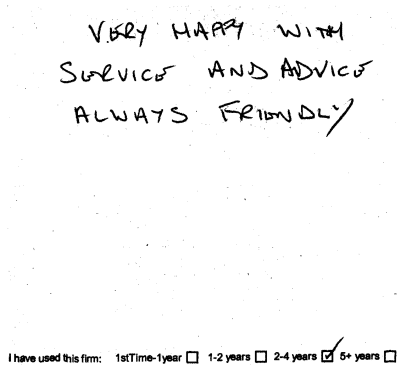 VERY HAPPY WITH
SERVICE AND ADVICE
ALWAYS FRIENDLY
I have used this firm: 1stTime-1year ☐ 1-2 years ☐ 2-4 years ☑ 5+ years ☐